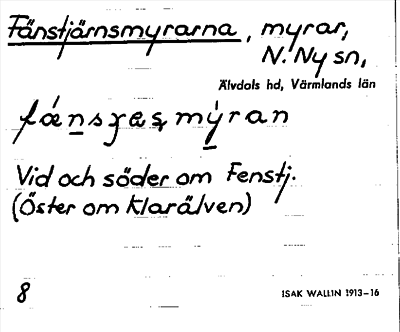 Fänstjärnsmyrarna, myrar,
N. Ny sn,
Älvdals hd, Värmlands län
Vid och söder om Fenstj.
(Öster om Klarälven)
8
ISAK WALLIN 1913–16